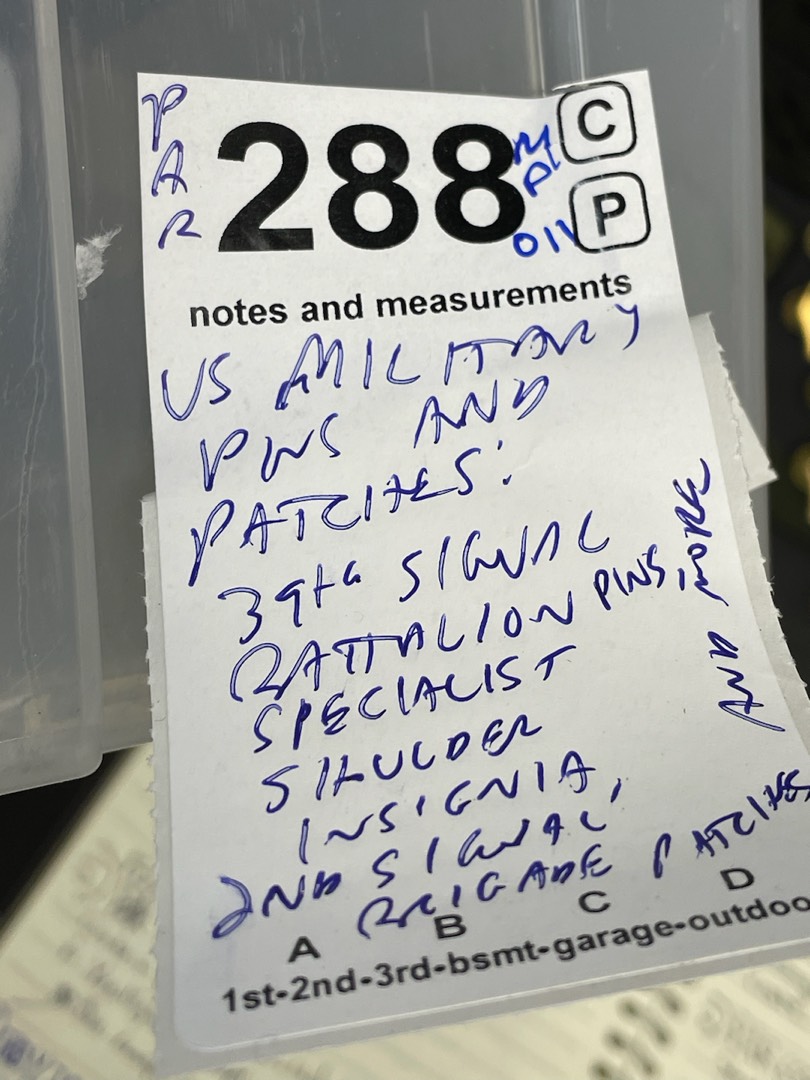 PAR
288
M
PL
011
C
P
notes and measurements
US MILITARY
PINS AND
PATCHES:
39th SIGNAL
BATTALION PINS,
SPECIALIST
SHULDER
INSIGNIA,
2ND SIGNAL
BRIGADE PATCHES
AND MORE
A B C D
1st-2nd-3rd-bsmt-garage-outdoo